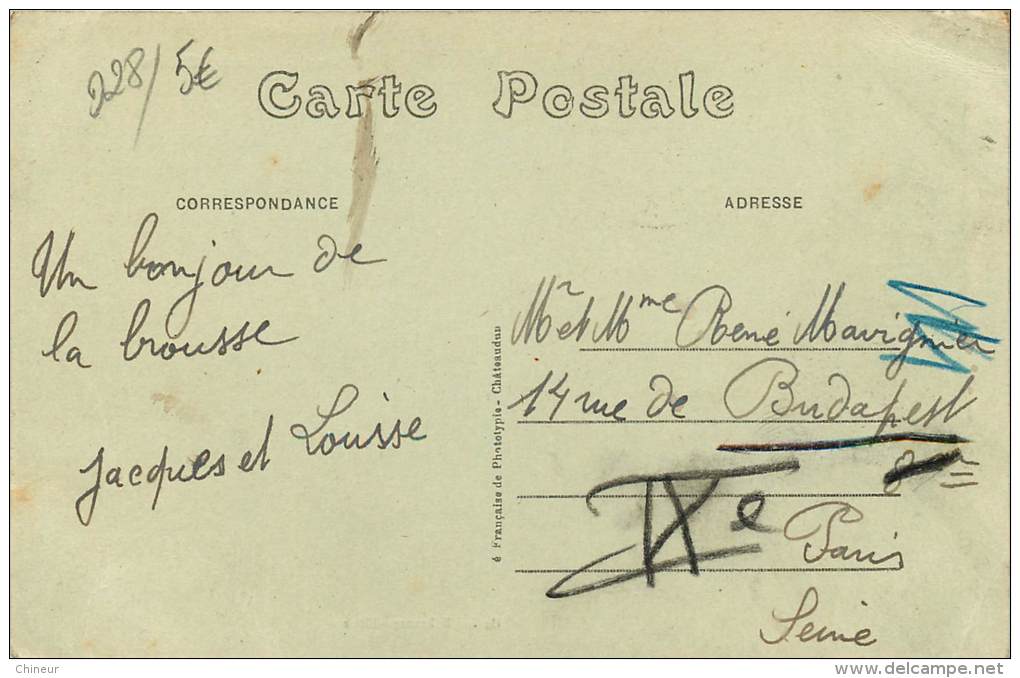 228/5€
Carte Postale
CORRESPONDANCE
ADRESSE
Un bonjour de
la brousse
Jacques et Louisse
Mr et Mme René Mavignier
14 rue de Budapest
8
IXe
Paris
Seine
é Française de Phototypie - Châteaudun
Chineur
www.delcampe.net